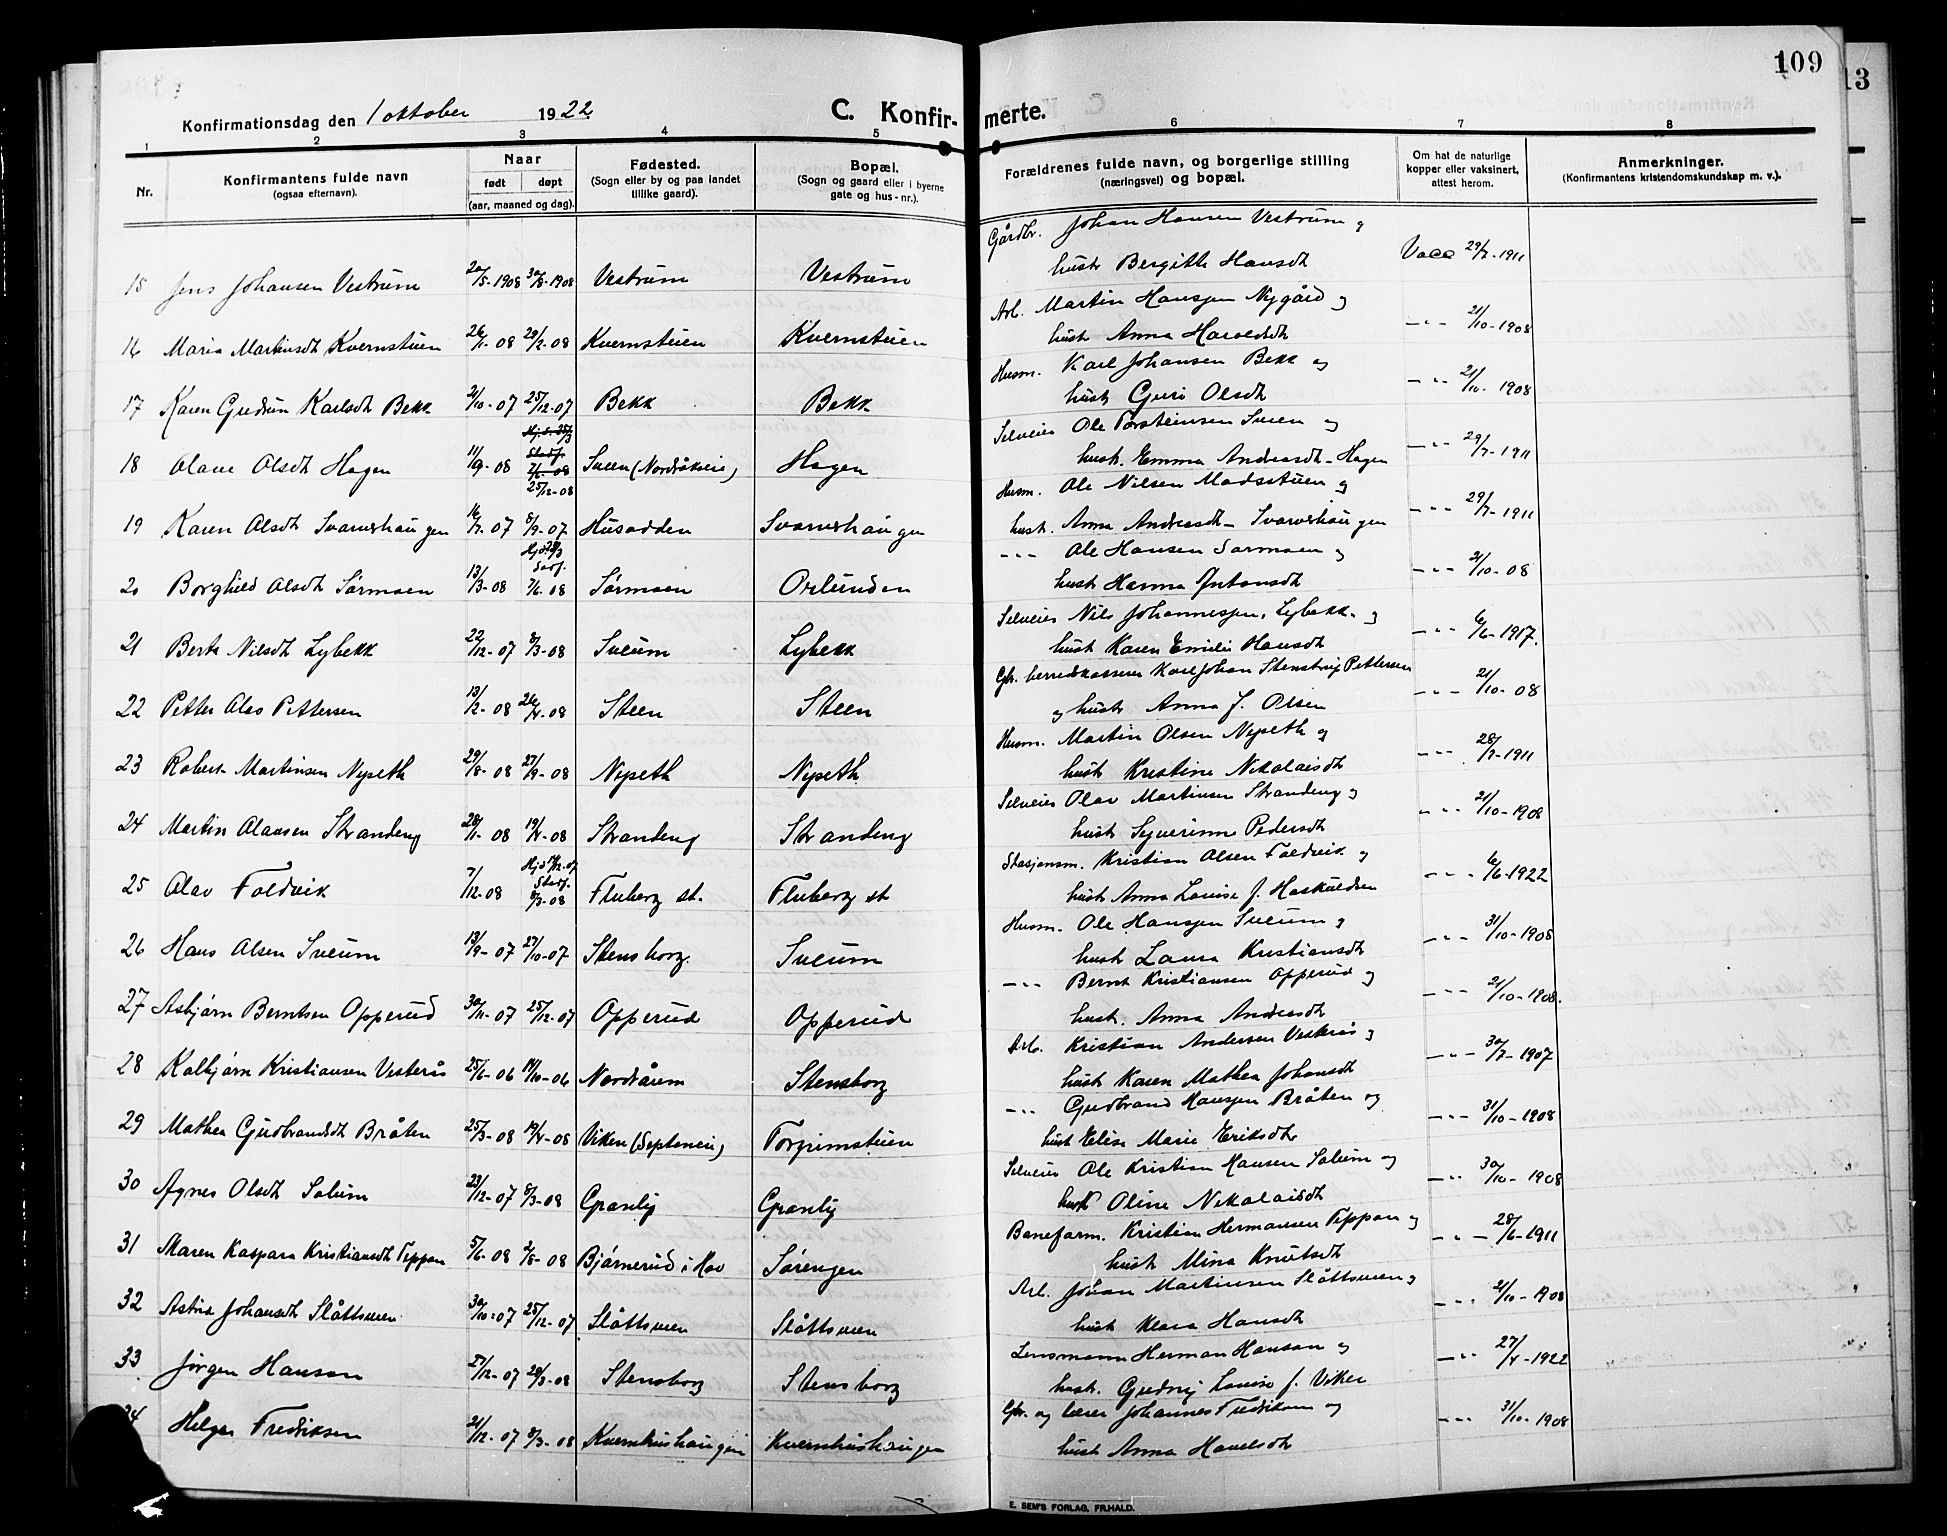 109
13
Konfirmationsdag den 1 oktober 1922 C. Konfirmerte.
1 2 3 4 5 6 7 8
Nr. Konfirmantens fulde navn (ogsaa efternavn). Naar født døpt (aar, maaned og dag). Fødested. (Sogn eller by og paa landet tillike gaard). Bopæl. (Sogn og gaard eller i byerne gate og hus-nr.). Forældrenes fulde navn, og borgerlige stilling (næringsvei) og bopæl. Om hat de naturlige kopper eller vaksinert, attest herom. Anmerkninger. (Konfirmantens kristendomskundskap m. v.).
Gårdbr. Johan Hansen Vestrum og
15 Jens Johansen Vestrum 20/5-1908 30/8-1908 Vestrum Vestrum hust Bergitte Hansdt Vacc 29/7-1911
Arb. Martin Hansen Nygård og
16 Maria Martinsdt Kvernstuen 26/1-08 29/2-08 Kvernstuen Kvernstuen hust Anna Haroldsdt -"- 21/10-1908
Husm. Karl Johansen Bekk og
17 Karen Gudrun Karlsdt Bekk 21/10-07 25/12-07 Bekk Bekk hust Guri Olsdt -"- 21/10-1908
Selveier Ole Torsteinsen Sveen og
18 Olave Olsdt Hagen 11/9-08 25/12-08 Sveen (Nordråkeie) Hagen hust. Emma Andreasdt - Hagen -"- 29/7-1911
Husm. Ole Nilsen Madsstuen og
19 Karen Olsdt Svarverhaugen 16/7-07 8/9-07 Husodden Svarverhaugen hust. Anna Andreasdt - Svarverhaugen -"- 29/7-1911
-"- Ole Hansen Sørmoen og
20 Borghild Olsdt Sørmoen 13/3-08 7/6-08 Sørmoen Oslunden hust Hanna Antonsdt -"- 21/10-08
Selveier Nils Johannessen, Lybekk. og
21 Berte Nilsdt Lybekk 22/12-07 8/3-08 Sveum Lybekk hust Karen Emilie Hansdt -"- 6/6-1917.
Gbr. herredskasserer Karl Johan Stenstrup Pettersen
22 Petter Olav Pettersen 13/2-08 26/4-08 Steen Steen og hust Anna f. Olsen -"- 21/10-08
Husm. Martin Olsen Nyseth og
23 Robert Martinsen Nyseth 29/8-08 27/9-08 Nyseth Nyseth hust Kristine Nikolaisdt -"- 28/7-1911
Selveier Olav Martinsen Strandeng og
24 Martin Olavsen Strandeng 28/1-08 19/4-08 Strandeng Strandeng hust Syverinne Pedersdt -"- 21/10-1908
Stasjonsm. Kristian Olsen Foldvik og
25 Olav Foldvik 7/12-08 Hjd 17/12-07 Stadf. 8/3-08 Fluberg st. Fluberg st hust Anna Louise f. Haskuldsen -"- 6/6-1922
Husm. Ole Hansen Sveum og
26 Hans Olsen Sveum 13/9-07 27/10-07 Stensborg. Sveum hust Laura Kristiansdt -"- 31/10-1908
-"- Bernt Kristiansen Opperud og
27 Asbjørn Berntsen Opperud 30/11-07 25/12-07 Opperud Opperud hust. Anna Andersdt -"- 21/10-1908.
Arb. Kristian Andersen Vesterås og
28 Kolbjørn Kristiansen Vesterås 25/6-06 14/10-06 Nordråum Stensborg hust Karen Mathea Johansdt -"- 30/7-1907
-"- Gudbrand Hansen Bråten og
29 Mathea Gudbrandsdt Bråten 25/3-08 19/4-08 Viken (Septoneie) Torgrimstuen hust Elise Marie Eriksdt -"- 31/10-1908
Selveier Ole Kristian Hansen Solum og
30 Agnes Olsdt Solum 23/12-07 8/3-08 Granly Granly hust Oline Nikolaisdt -"- 30/10-1908
Baneform. Kristian Hermansen Teppen og
31 Maren Kaspara Kristiansdt Teppen 5/6-08 2/8-08 Bjørnerud i Hov Sørengen hust Mina Knutsdt -"- 28/6-1911
Arb. Johan Martinsen Slåttsveen og
32 Astrid Johansdt Slåttsveen 30/10-07 25/12-07 Slåttsveen Slåttsveen hust Klara Hansdt -"- 21/10-1908
Lensmann Herman Hanson og
33 Jørgen Hanson 27/12-07 29/3-08 Stensborg Stensborg hust. Gudny Louise f. Viker -"- 27/4-1922
Gbr. og lærer Johannes Fredriksen og
34 Helga Fredriksen 21/12-07 8/3-08 Kvernhushaugen Kvernhushaugen hust Anna Hauelsdt -"- 31/10-1908
E. SEM'S FORLAG, FR.HALD.